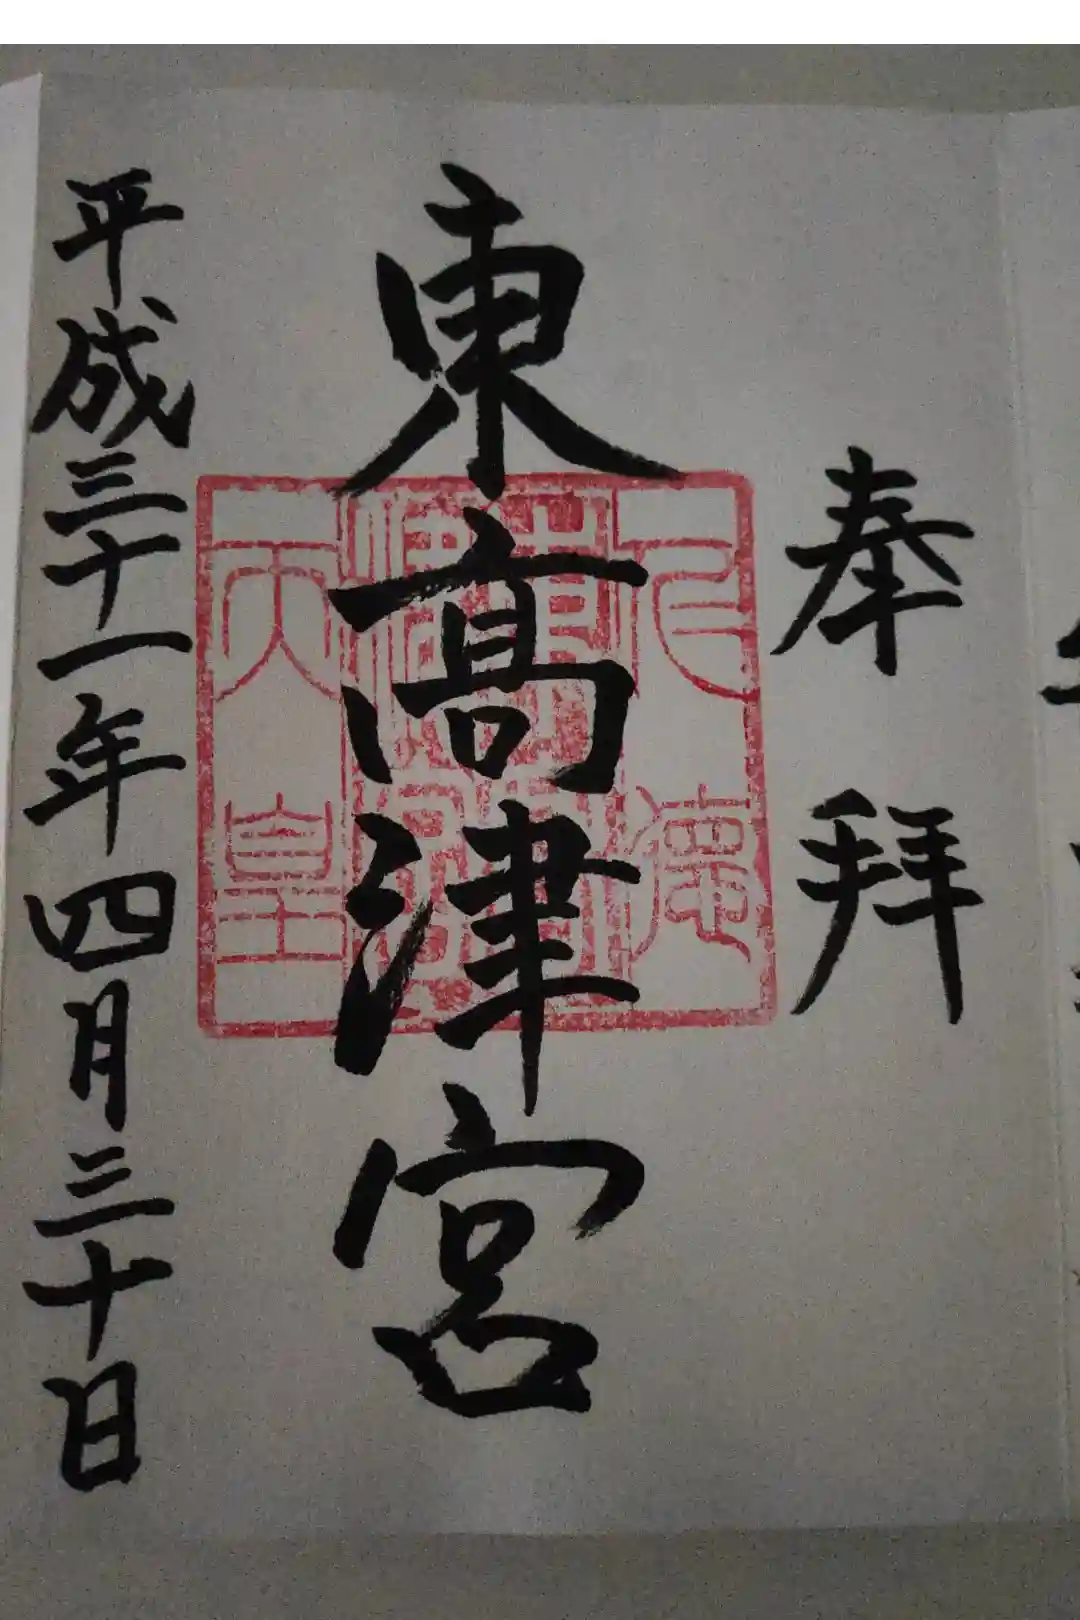 奉拝
東高津宮
仁徳
天皇
平成三十一年四月三十日